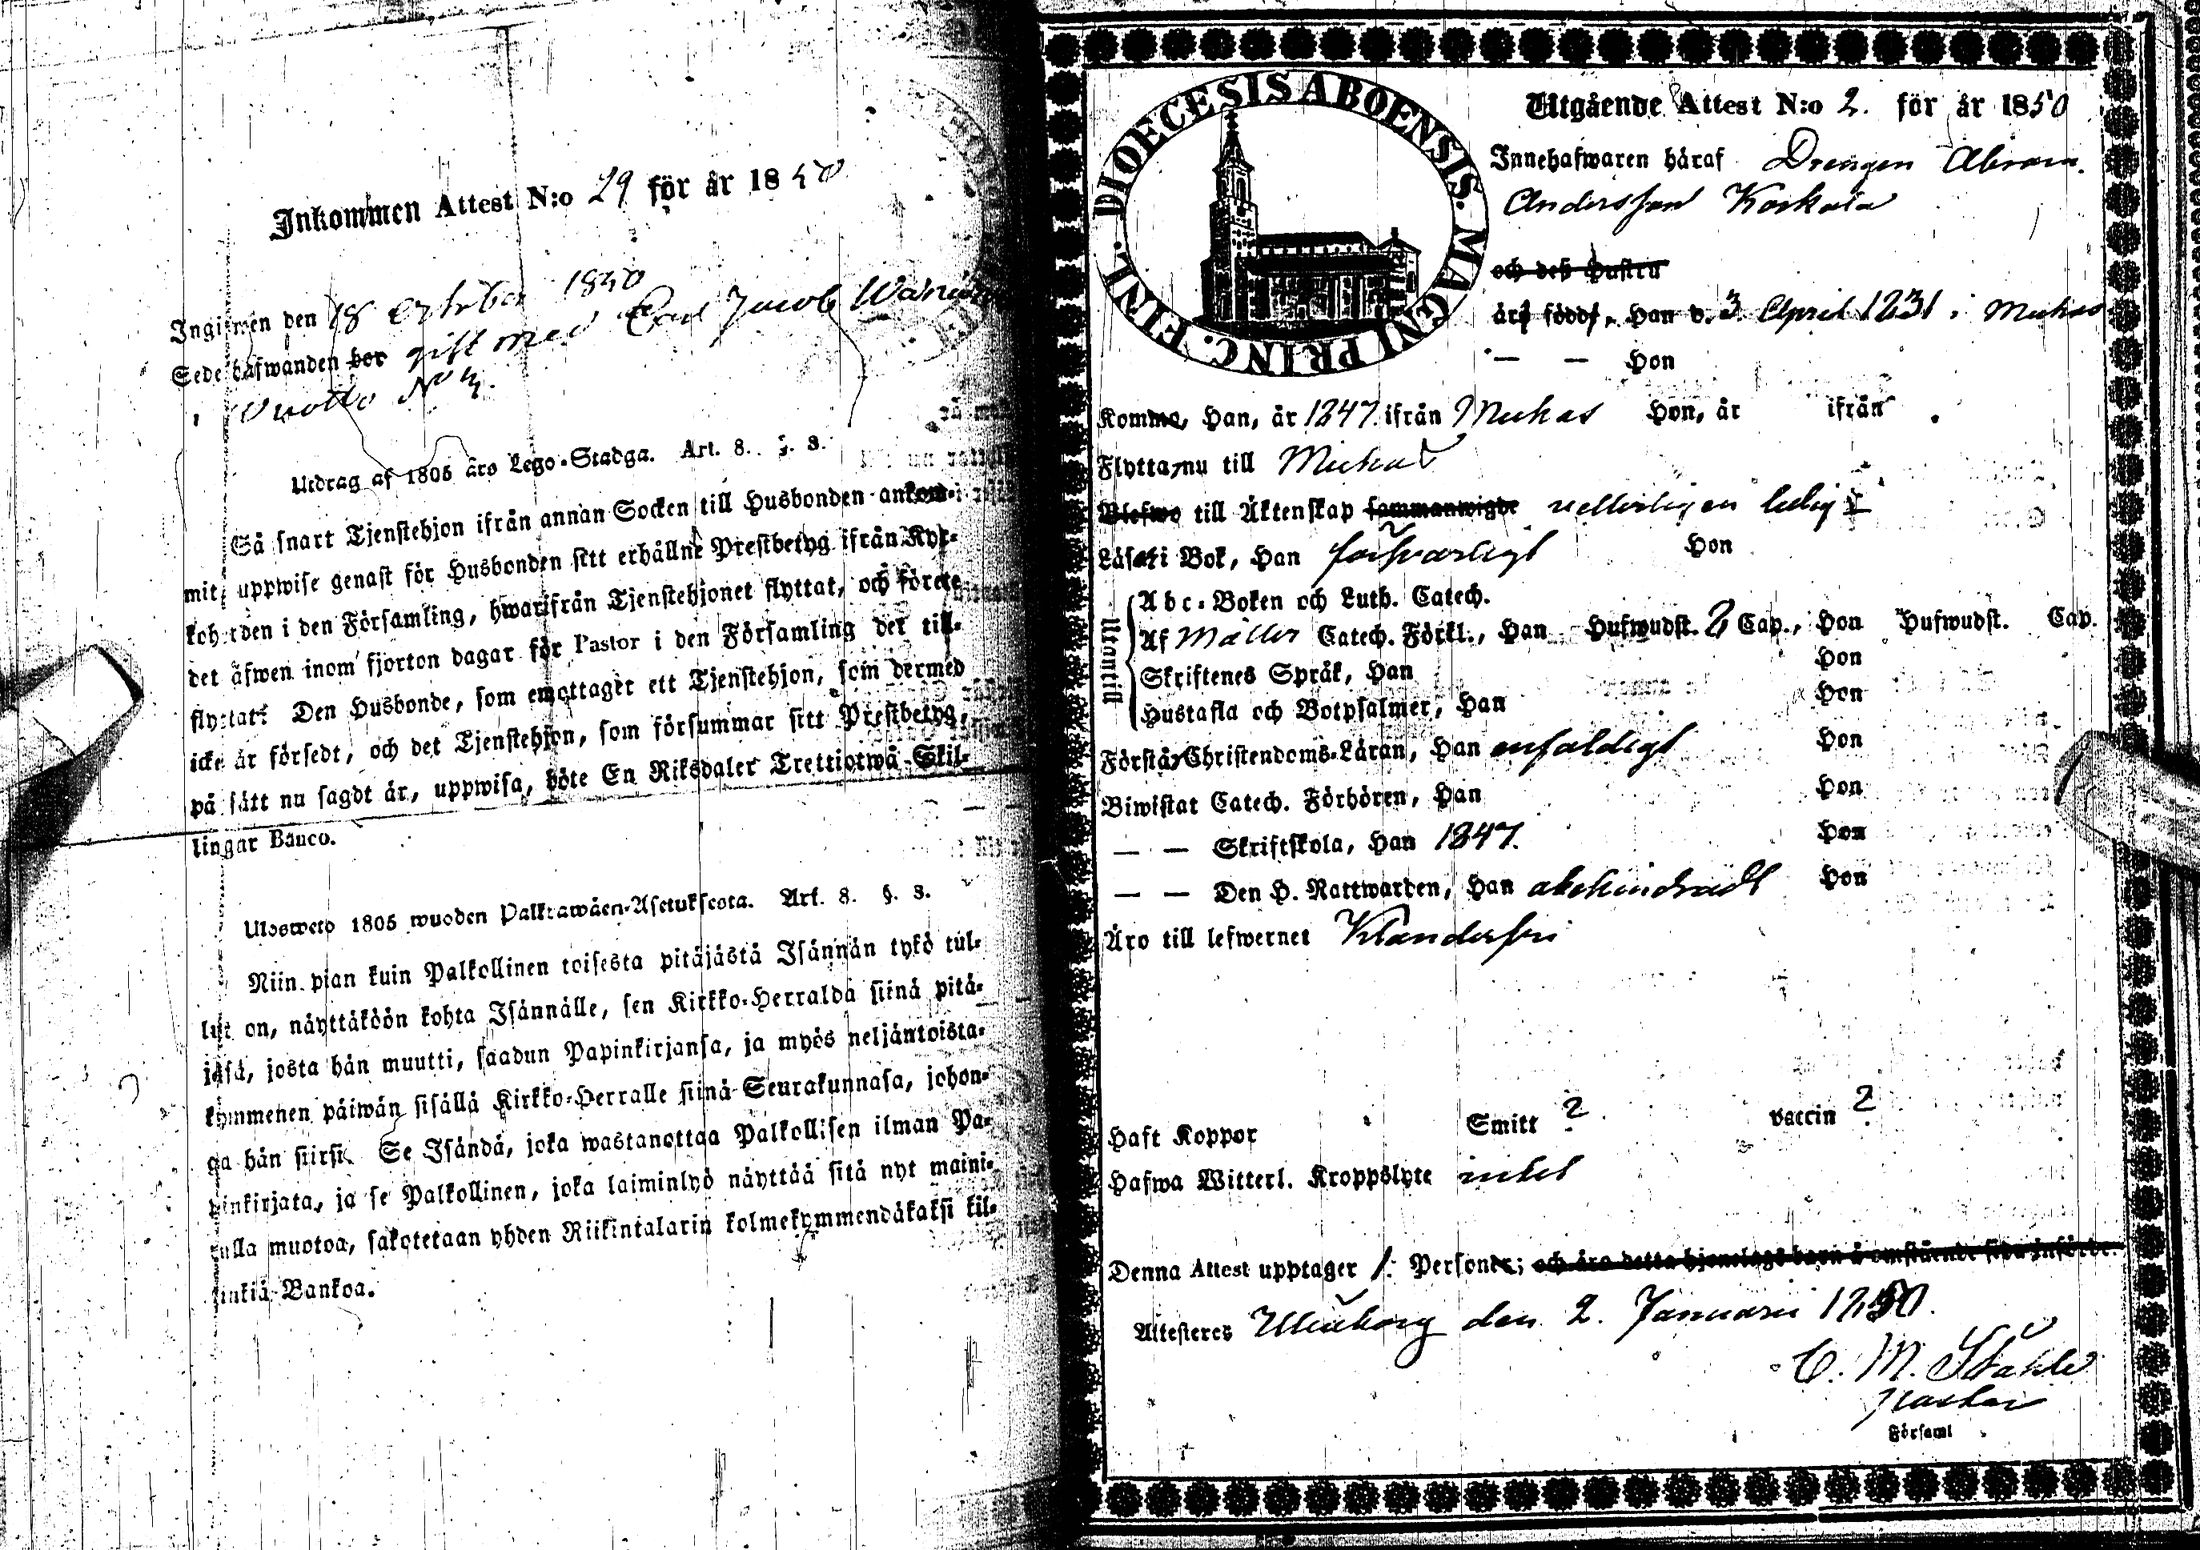 Inkommen Attest N:o 29 för år 1850
Ingifwen den 18 October 1850
Sedelhafwanden bor gift med Carl Jacob
i N:o
Utdrag af 1805 års Lego-Stadga. Art. 8. §. 3.
Så snart Tjenstehjon ifrån annan Socken till Husbonden ankom-
mit, uppwise genast för Husbonden sitt erhållne Prestbetyg ifrån Kyr-
koherden i den Församling, hwarifrån Tjenstehjonet flyttat, och förete
det äfwen inom fjorton dagar för Pastor i den Församling det till-
flyttat: Den Husbonde, som emottager ett Tjenstehjon, som dermed
icke är försedt, och det Tjenstehjon, som försummar sitt Prestbetyg,
på sätt nu sagdt är, uppwisa, böte En Riksdaler Trettiotwå Skil-
lingar Banco.
Ulosweto 1805 wuoden Palkkawäen-Asetuksesta. Art. 8. §. 3.
Niin pian kuin Palkollinen toisesta pitäjästä Isännän tykö tul-
lut on, näyttäköön kohta Isännälle, sen Kirkko-Herralda siinä pitä-
jäsä, josta hän muutti, saadun Papinkirjansa, ja myös neljäntoista-
kymmenen päiwän sisällä Kirkko-Herralle siinä Seurakunnasa, johon-
ga hän siirsi. Se Isändä, joka wastanottaa Palkollisen ilman Pa-
pinkirjata, ja se Palkollinen, joka laiminlyö näyttää sitä nyt maini-
tulla muotoa, sakotetaan yhden Riikintalarin kolmekymmendäkaksi kil-
linkiä Bankoa.
DIOECESIS ABOENSIS. MAGNI PRINC. FINL.
Utgående Attest N:o 2. för år 1850
Innehafwaren häraf Drengen Abram
Andersson Korkala
och deß Hustru
äro födde, Han d. 3 April 1831 i Muhos
— — Hon
Komme, Han, år 1847 ifrån Muhos Hon, år ifrån
Flytta nu till Muhos
Blefwo till Äktenskap sammanwigde ledig
Läsa i Bok, Han försvarligt Hon
Utantill
Abc-Boken och Luth. Catech.
Af Möller Catech. Förkl., Han Hufwudst. 2 Cap., Hon Hufwudst. Cap.
Skriftenes Språk, Han Hon
Hustafla och Botpsalmer, Han Hon
Förstå Christendoms-Läran, Han enfaldigt Hon
Biwistat Catech. Förhören, Han Hon
— — Skriftskola, Han 1847. Hon
— — Den H. Nattwarden, Han obehindradt Hon
Äro till lefwernet Klanderfri
Haft Koppor Smitt ? vaccin ?
Hafwa Witterl. Kroppslyte intet
Denna Attest upptager 1. Personer; och äro detta hjonelags barn å omstående sida införde.
Attesteres Uleåborg den 2. Januarii 1850.
C. M. Ståhle
Pastor
Församl